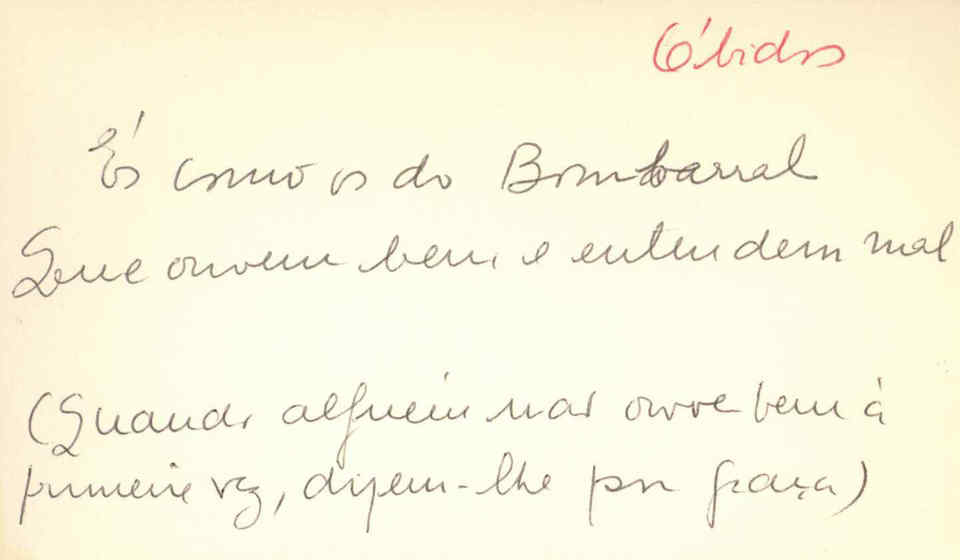 Óbidos
És como os do Bombarral
Que ouvem bem e entendem mal
(Quando alguém não ouve bem à
primeira vez, dizem-lhe por graça)